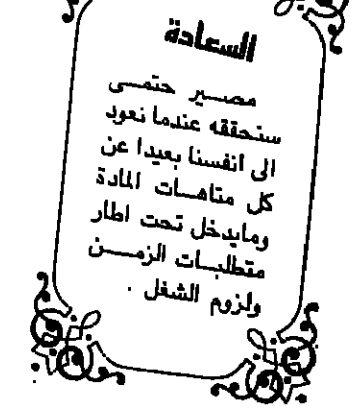 السعادة
مصير حتمى
سنحققه عندما نعود
الى انفسنا بعيدا عن
كل متاهات المادة
ومايدخل تحت اطار
متطلبات الزمن
ولزوم الشغل .